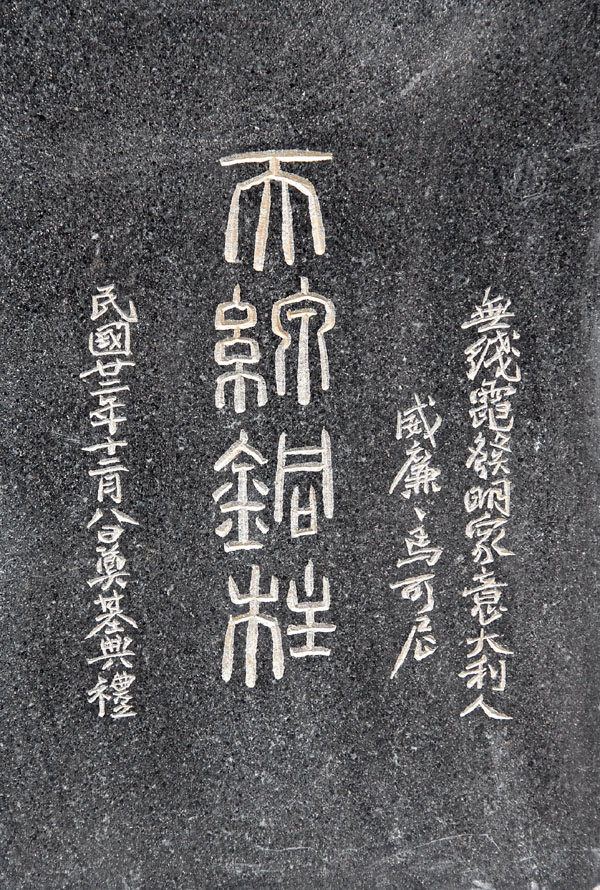 無綫電發明家意大利人
威廉、馬可尼
天線銅柱
民國廿二年十二月八日奠基典禮